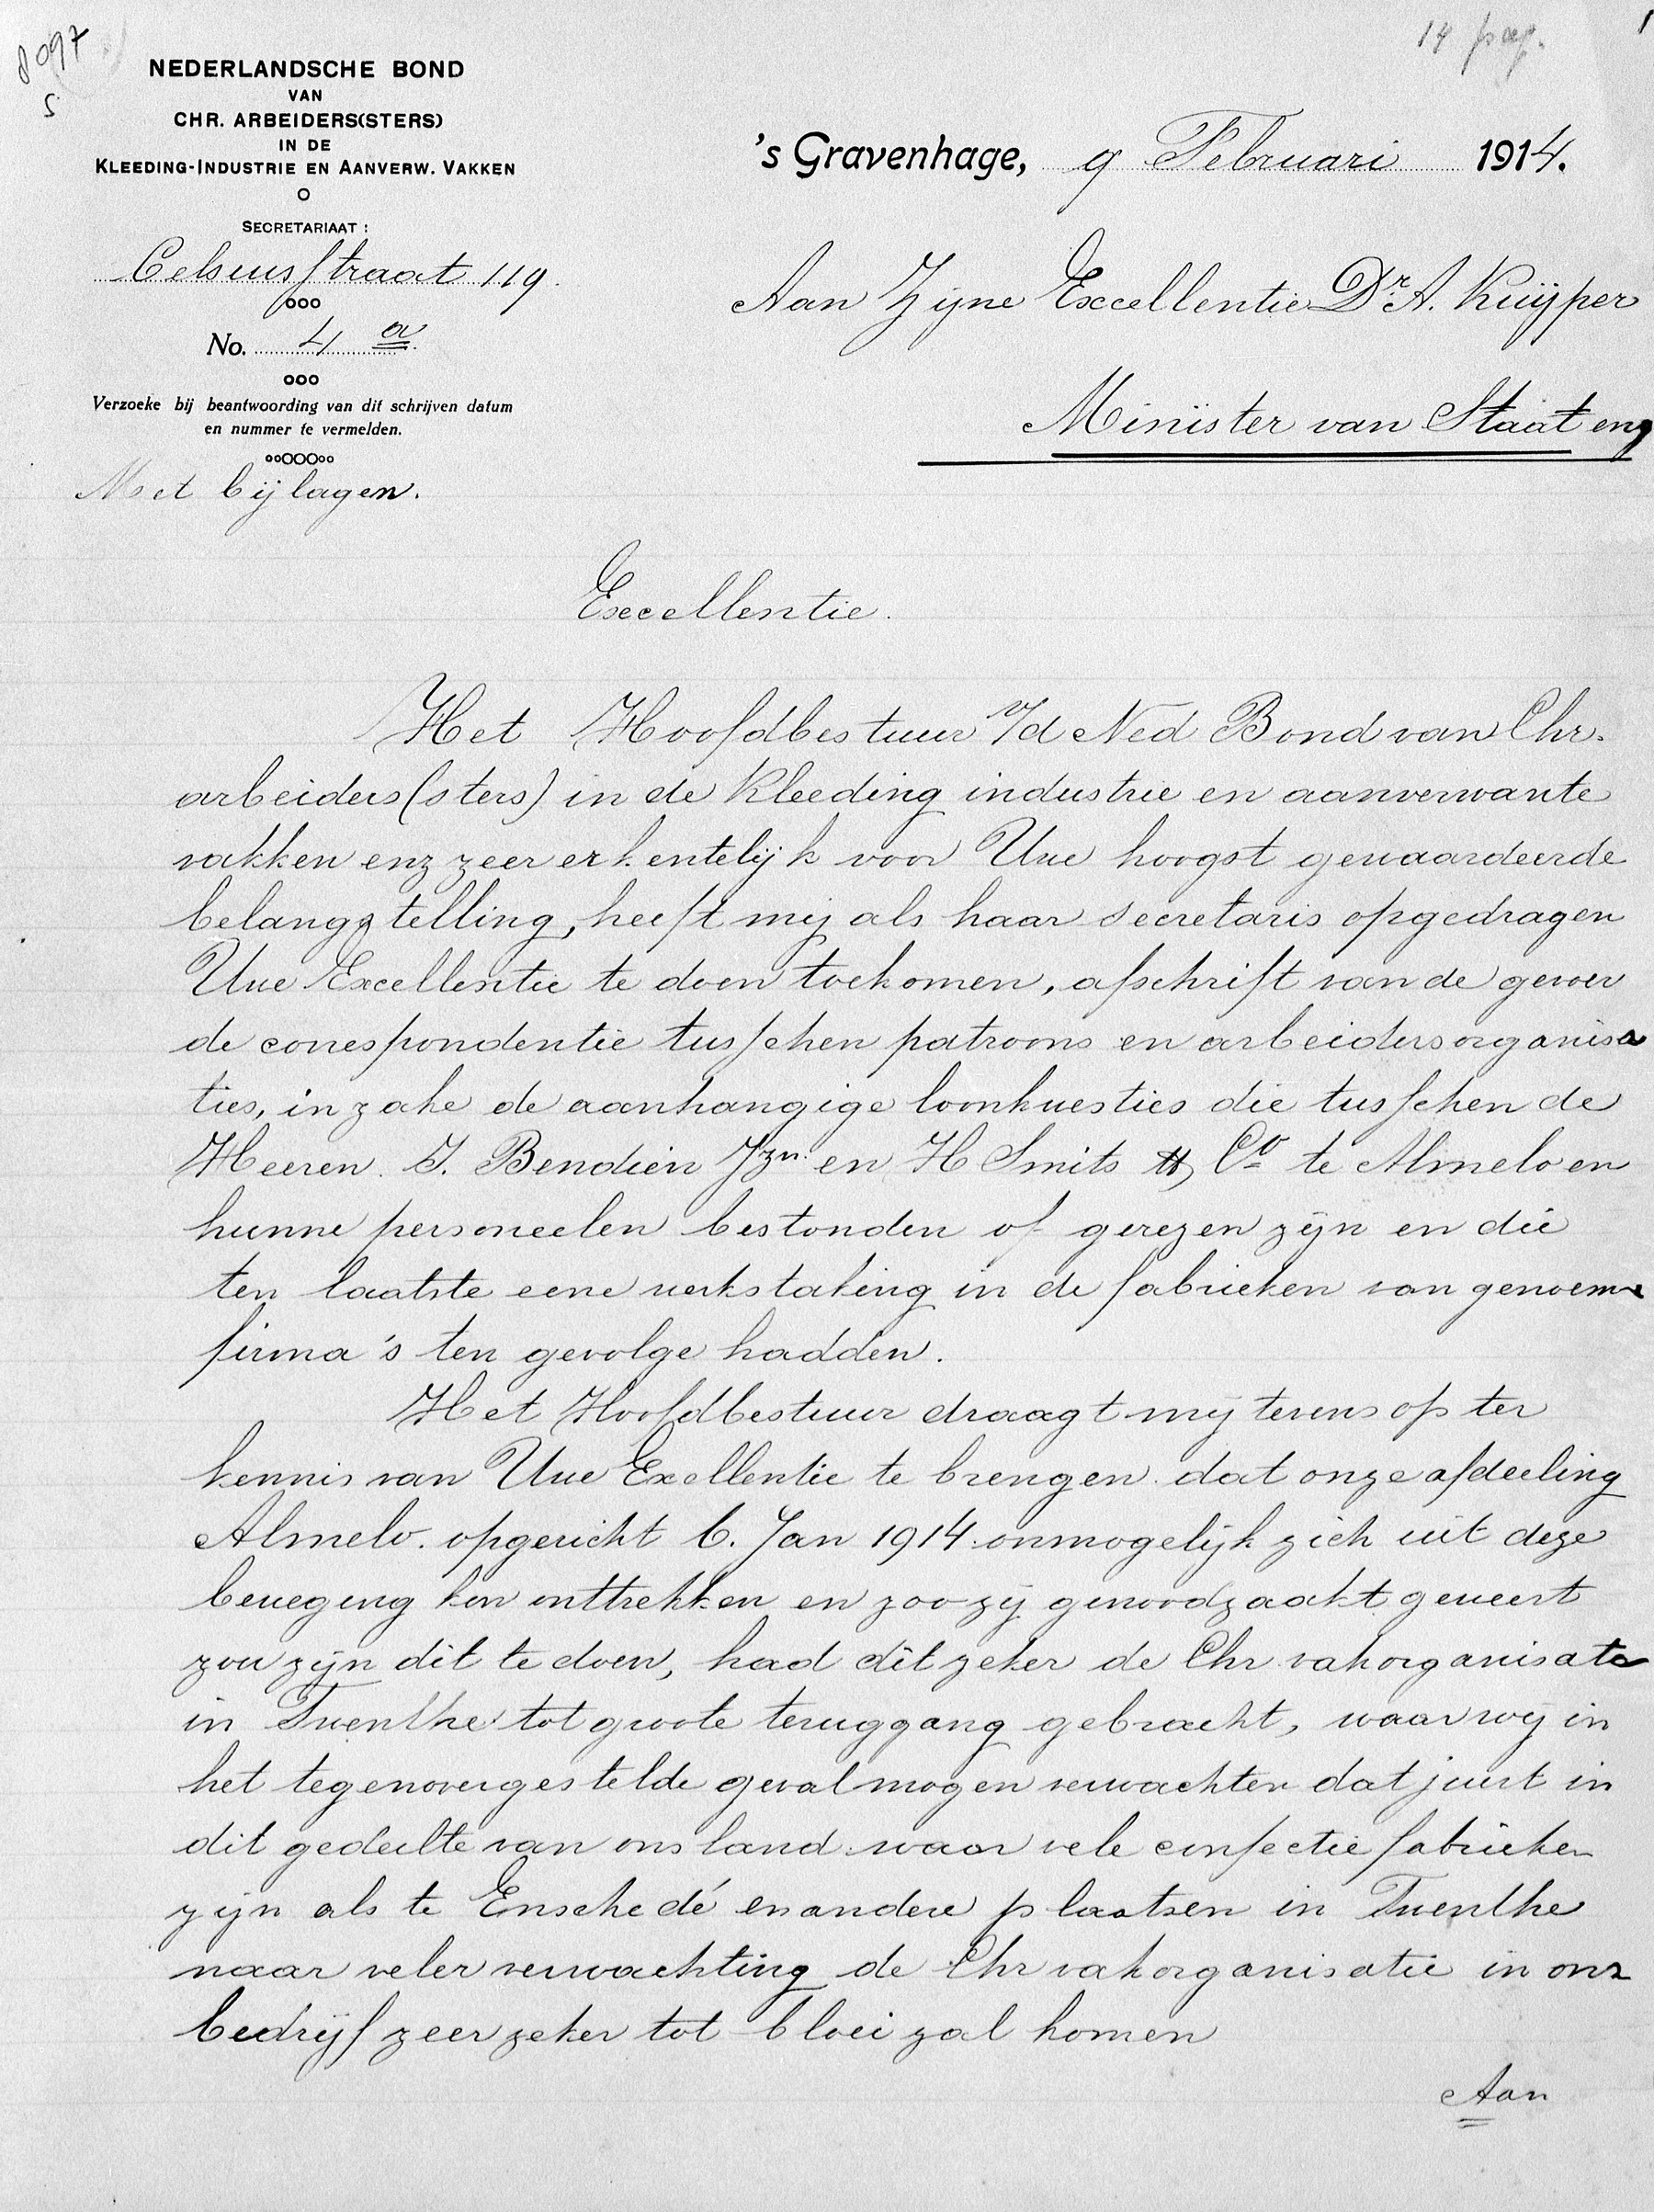 8097
5
14 
1
NEDERLANDSCHE BOND
VAN
CHR. ARBEIDERS(STERS)
IN DE
KLEEDING-INDUSTRIE EN AANVERW. VAKKEN
SECRETARIAAT:
Celsiusstraat 119.
No. 4 a.
Verzoeke bij beantwoording van dit schrijven datum
en nummer te vermelden.
Met bijlagen.
's Gravenhage, 9 Februari 1914.
Aan Zijne Excellentie Dr. A. Kuijper
Minister van Staat enz
Excellentie.
Het Hoofdbestuur v/d Ned Bond van Chr.
arbeiders(sters) in de Kleeding industrie en aanverwante
vakken enz zeer erkentelijk voor Uwe hoogst gewaardeerde
belangstelling, heeft mij als haar secretaris opgedragen
Uwe Excellentie te doen toekomen, afschrift van de gevoer
de correspondentie tusschen patroons en arbeidersorganisa
ties, inzake de aanhangige loonkuesties die tusschen de
Heeren. J. Bendien Jzn. en H Smits & Co te Almelo en
hunne personeelen bestonden of gerezen zijn en die
ten laatste eene werkstaking in de fabrieken van genoem
firma's ten gevolge hadden.
Het Hoofdbestuur draagt mij tevens op ter
kennis van Uwe Exellentie te brengen dat onze afdeeling
Almelo. opgericht 6. Jan 1914 onmogelijk zich uit deze
beweging kon onttrekken en zoo zij genoodzaakt geweest
zou zijn dit te doen, had dit zeker de Chr vakorganisate
in Twenthe tot groote teruggang gebracht, waar wij in
het tegenovergestelde geval mogen verwachten dat juist in
dit gedeelte van ons land waar vele confectie fabrieken
zijn als te Enschedé en andere plaatsen in Twenthe
naar veler verwachting de Chr vakorganisatie in ons
bedrijf zeer zeker tot bloei zal komen
Aan